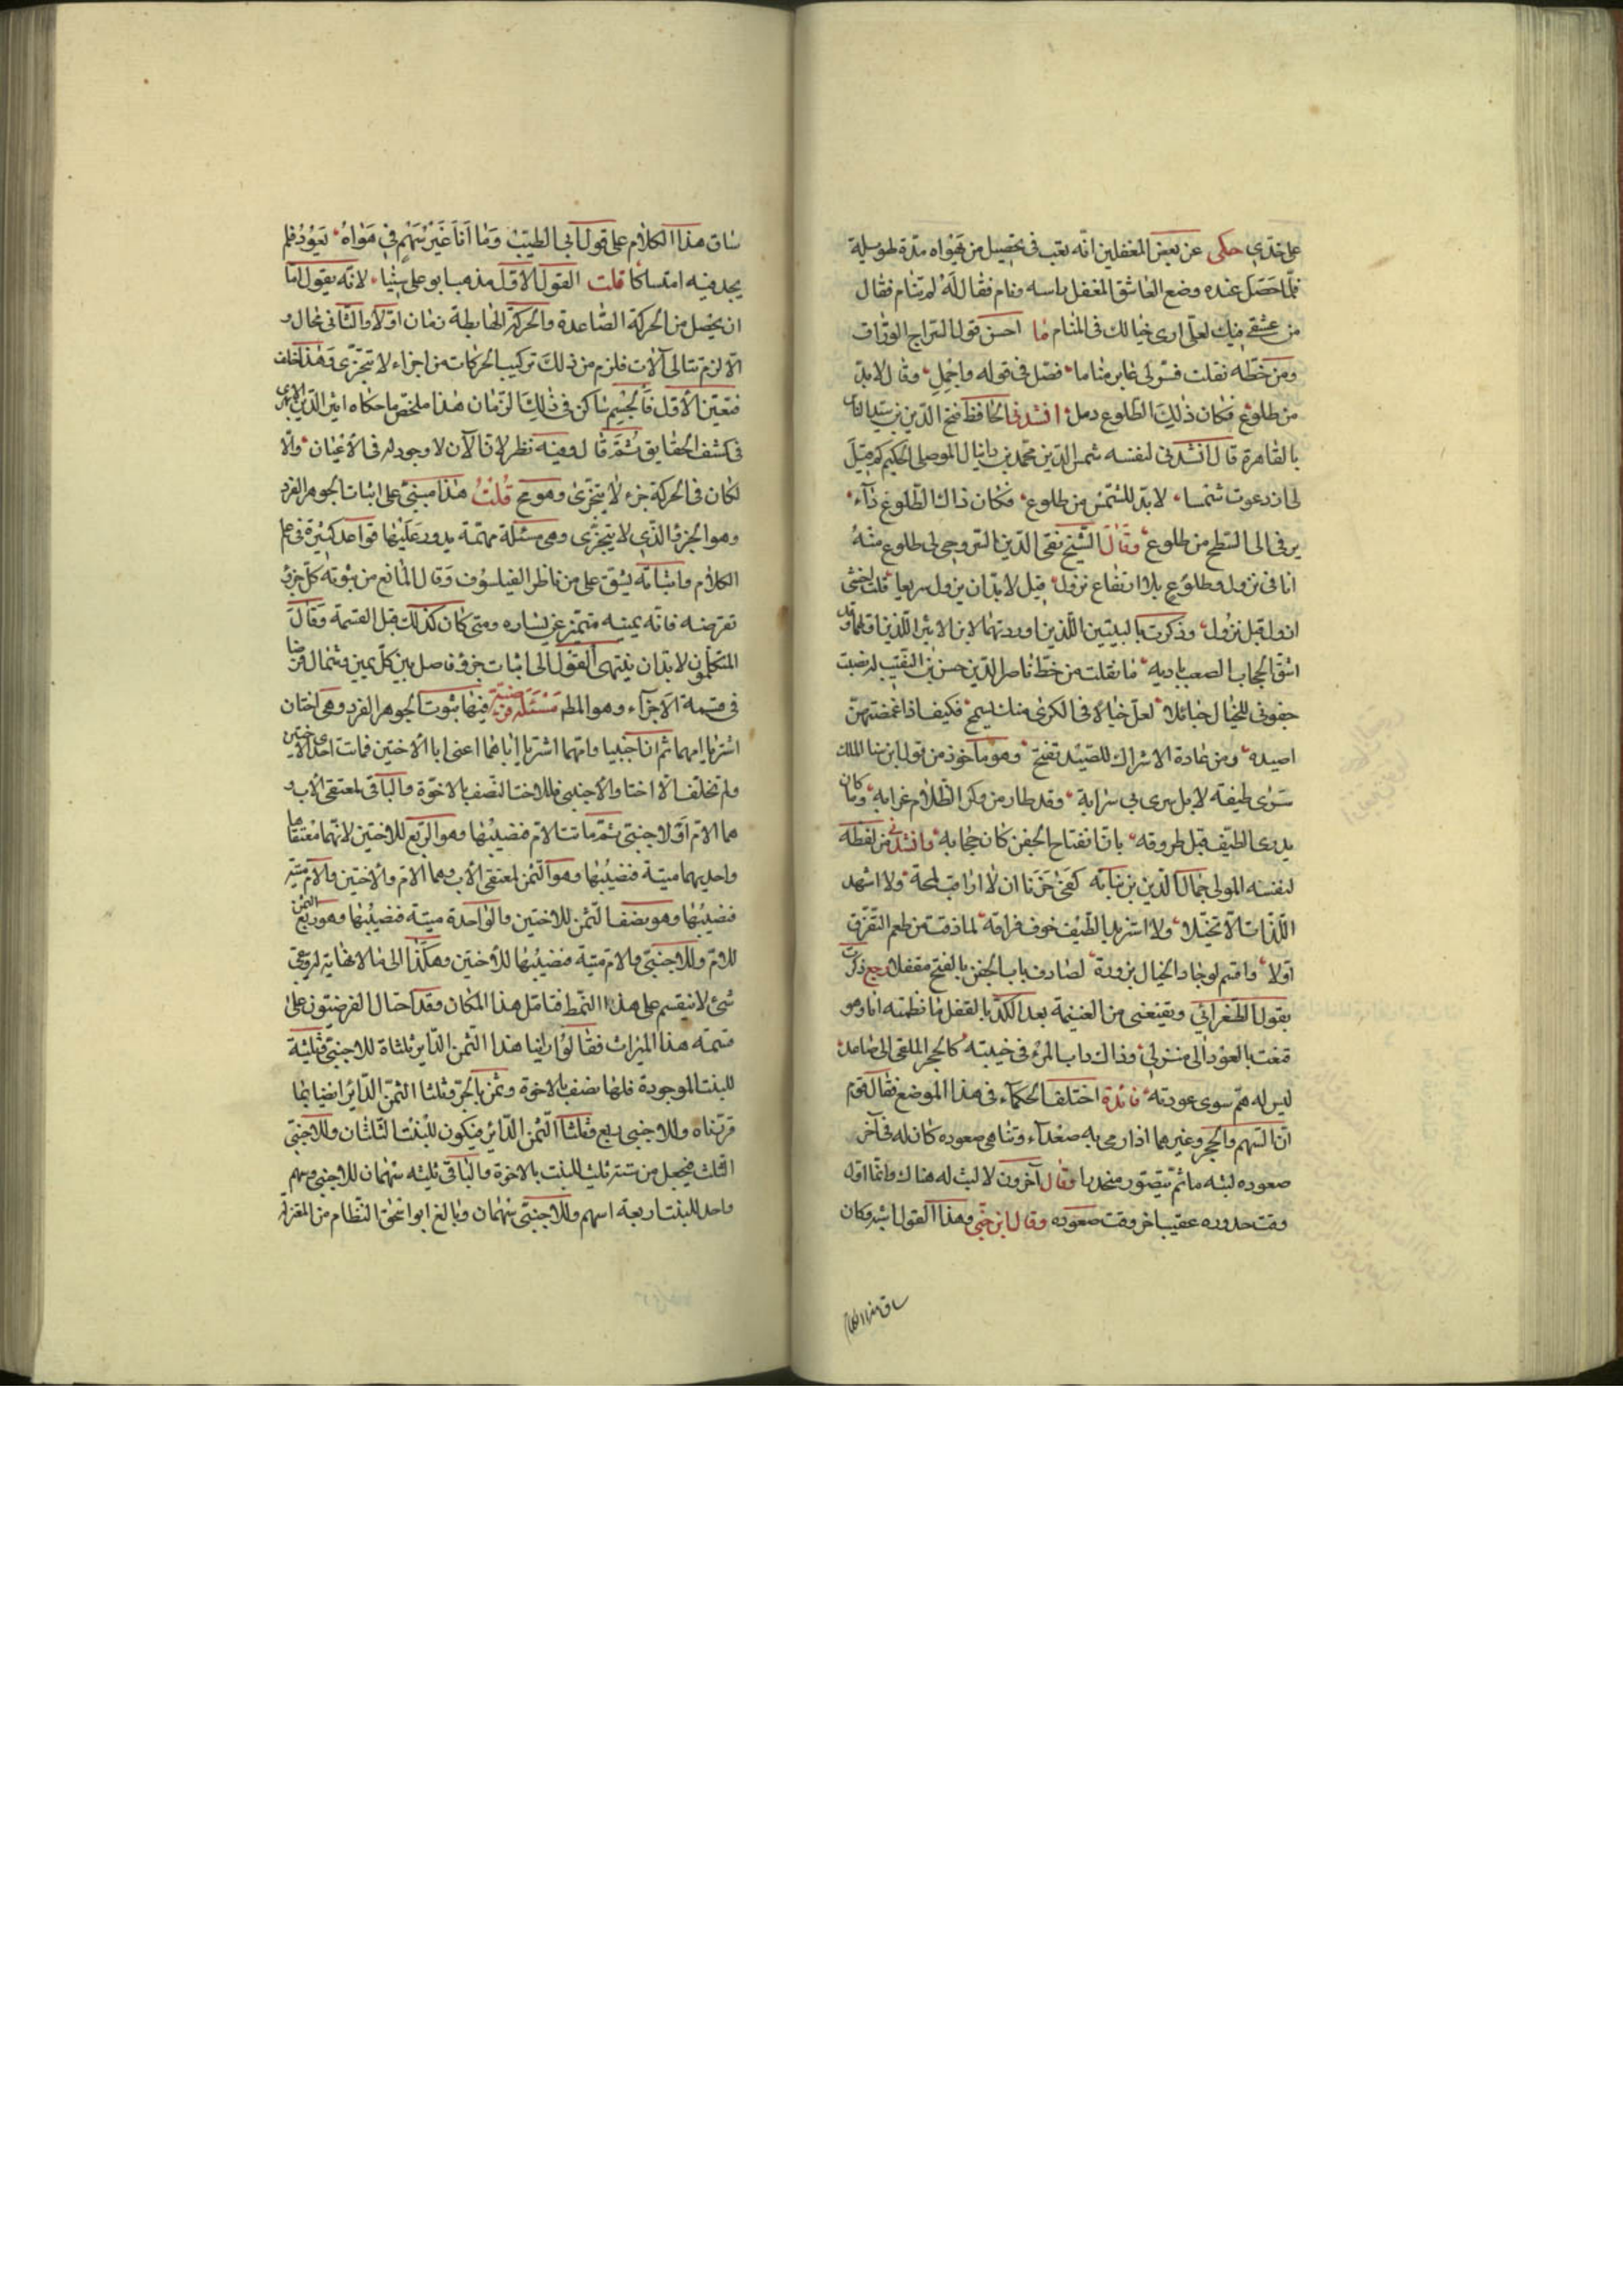 على خدي حكى عن بعض المغفلين انه تعب فى تحصيل من يهواه مدة طويلة
فلما حصل عنده وضع العاشق المغفل راسه ونام فقال له لم تنام فقال
من عشقى فيك لعلى ارى خيالك فى المنام ما احسن قول السراج الوراق
ومن خطه نقلت فسر لى عابر مناما فصل فى قوله واجمل وقال لا بد
من طلوع فكان ذلك الطلوع دمل انشدنى الحافظ فتح الدين بن سيد الناس
بالقاهرة قال انشدنى لنفسه شمس الدين محمد بن دانيال الموصلى الحكيم كم قيل
لى اذ دعوت شمسا لا بد للشمس من طلوع فكان ذاك الطلوع داء
يرقى الى السطح من طلوع وقال الشيخ تقى الدين السروجى لى طلوع منه
انا فى نزول وطلوع بلا ارتفاع نزول قيل لا بد ان يزول سريعا قلت اخشى
ازول قبل نزول وذكرت بالبيتين اللذين اوردتهما لابن الاثير اللذين اولهما وقد
اشق الحجاب الصعب باديه ما نقلت من خط ناصر الدين حسن بن النقيب له نصبت
جفونى للخيال حبائلا لعل خيالا فى الكرى منك يسمح فكيف اذا غمضتهن
اصيده ومن عادة الاشراك للصيد تفتح وهو ماخوذ من قول ابن سنا الملك
سرى طيفه لا بل سرى بى سرابه وقد طار من وكر الظلام غرابه وما كان
يدرى الطيف قبل طروقه بان انفتاح الجفن كان حجابه وانشدنى من لفظه
لنفسه المولى جمال الدين بن نباته كفى حزنا ان لا اراقب لمحة ولا اشهد
اللذات الا تخيلا ولا استزير الطيف خوف فراقه لما ذقت من طعم التفرق
اولا واقسم لو جاد الخيال بزورة لصادف باب الجفن بالفتح مقفلا رجع ذكرت
بقول الطغرائى ويقنعنى من الغنيمة بعد الكد بالقفل ما نظمته انا وهو
قنعت بالعود الى منزلى وذاك داب المرء فى خيبته كالحجر الملقى الى صاعد
ليس له هم سوى عودته فائدة اختلف الحكماء فى هذا الموضع فقال قوم
ان السهم والحجر وغيرهما اذا رمى به صعدا وتناهى صعوده كان له فى آخر
صعوده لبثه ما ثم يتصور منحدرا وقال آخرون لا لبث له هناك وانما اول
وقت حدوره عقيب اخر وقت صعوده وقال ابن جنى وهذا القول اشبه وكان
ساق هذا الكلام
ساق هذا الكلام على قول ابى الطيب وما انا غير سهم فى هواء يعود فلم
يجد فيه امتساكا قلت القول الاول مذهب ابو على سينا لانه يقول اما
ان يحصل من الحركة الصاعدة والحركة الهابطة زمان اولا والثانى محال و
الا لزم تتالى الآنات فلزم من ذلك تركيب الحركات من اجزاء لا تتجزى وهذا خلف
فتعين الاول فالجسم ساكن فى ذلك الزمان هذا ملخص ما حكاه اثير الدين الابهرى
فى كشف الحقايق ثم قال وفيه نظر لان الآن لا وجود له فى الاعيان والا
لكان فى الحركة جزء لا يتجزى وهو مح قلت هذا مبنى على اثبات الجوهر الفرد
وهو الجزء الذى لا يتجزى وهى مسئلة مهمة يدور عليها قواعد كثيرة فى علم
الكلام واثباته يشق على من ناظر الفيلسوف وقال المانع من ثبوته كل جزء
تفرضه فانه يمينه متميز عن يساره ومتى كان كذلك قبل القسمة وقال
المتكلمون لا بد ان ينتهى القول الى اثبات جزء فاصل بين كل يمين وشمال فرضا
فى قسمة الاجزاء وهو المط مسئلة فرضية فيها ثبوت الجوهر الفرد وهى اختان
اشتريا امهما ثم ان اجنبيا وامهما اشتريا اباهما اعنى ابا الاختين فماتت احدى الاختين
ولم تخلف الا اختا والاجنبى فللاخت النصف بالاخوة والباقى لمعتقى الاب و
هما الام والاجنبى ثم ماتت الام فنصيبها وهو الربع للاختين لانهما معتقاها
واحديهما ميتة فنصيبها وهو الثمن لمعتقى الاب وهما الام والاختين والام ميتة
فنصيبها وهو نصف الثمن للاختين والواحدة ميتة فنصيبها وهو ربع الثمن
للام وللاجنبى والام ميتة فنصيبها للاختين وهكذا الى ما لا نهاية له وبقى
شئ لا ينقسم على هذا النمط فتامل هذا المكان وقد احتال الفرضيون على
قسمة هذا الميراث فقالوا راينا هذا الثمن الداير ثلثاه للاجنبى وثلثه
للبنت الموجودة فلها نصف بالاخوة وثمن بالجر وثلثا الثمن الداير ايضا بما
قررناه وللاجنبى ربع وثلثا الثمن الداير فيكون للبنت الثلثان وللاجنبى
الثلث فيجعل من ستة ثلثه للبنت بالاخوة والباقى ثلثه سهمان للاجنبى وسهم
واحد للبنت اربعة اسهم وللاجنبى سهمان وبالغ ابو اسحق النظام من المعتزلة